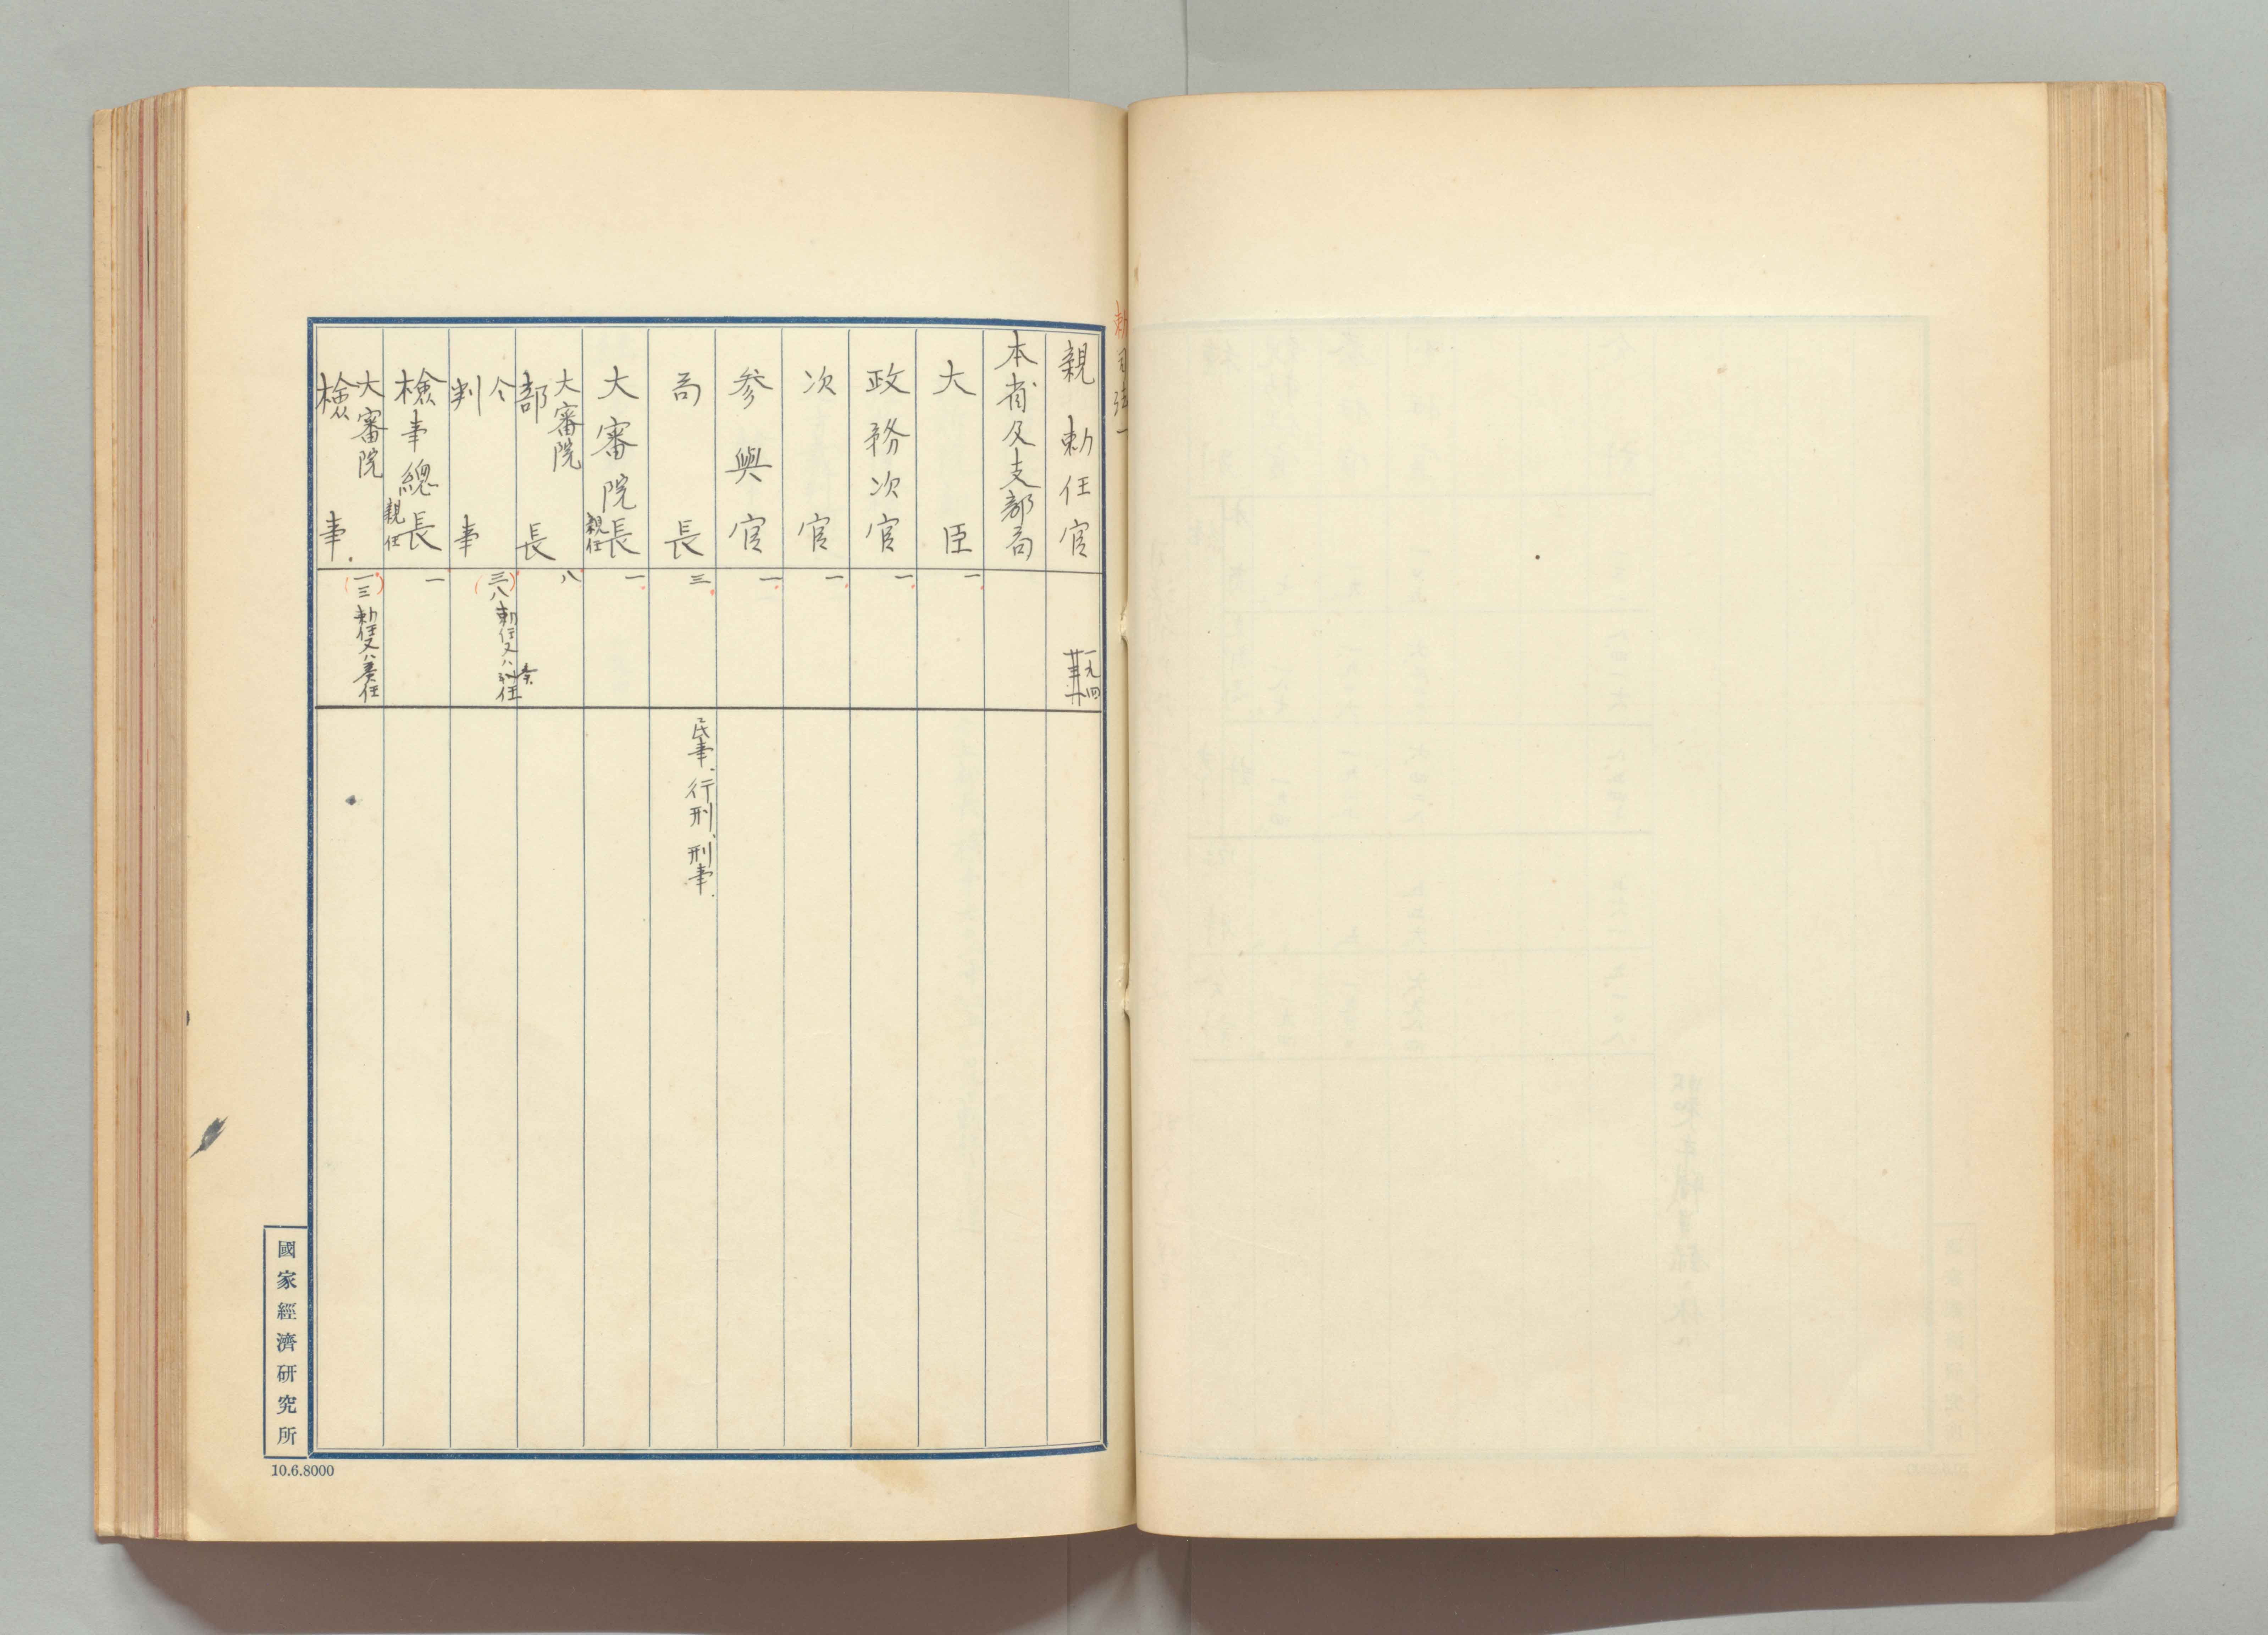 勅司法一
親勅任官
本省及支部局
大臣 一
政務次官 一
次官 一
参與官 一
局長 三 民事、行刑、刑事
大審院長 親任 一
大審院部長 八
仝判事 (三八) 勅任又ハ奏任
檢事總長 親任 一
大審院檢事 (一三) 勅任又ハ奏任
國家經濟研究所
10.6.8000